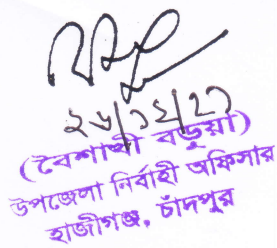 ২৬/১২/২০
(বৈশাখী বড়ুয়া)
উপজেলা নির্বাহী অফিসার
হাজীগঞ্জ, চাঁদপুর